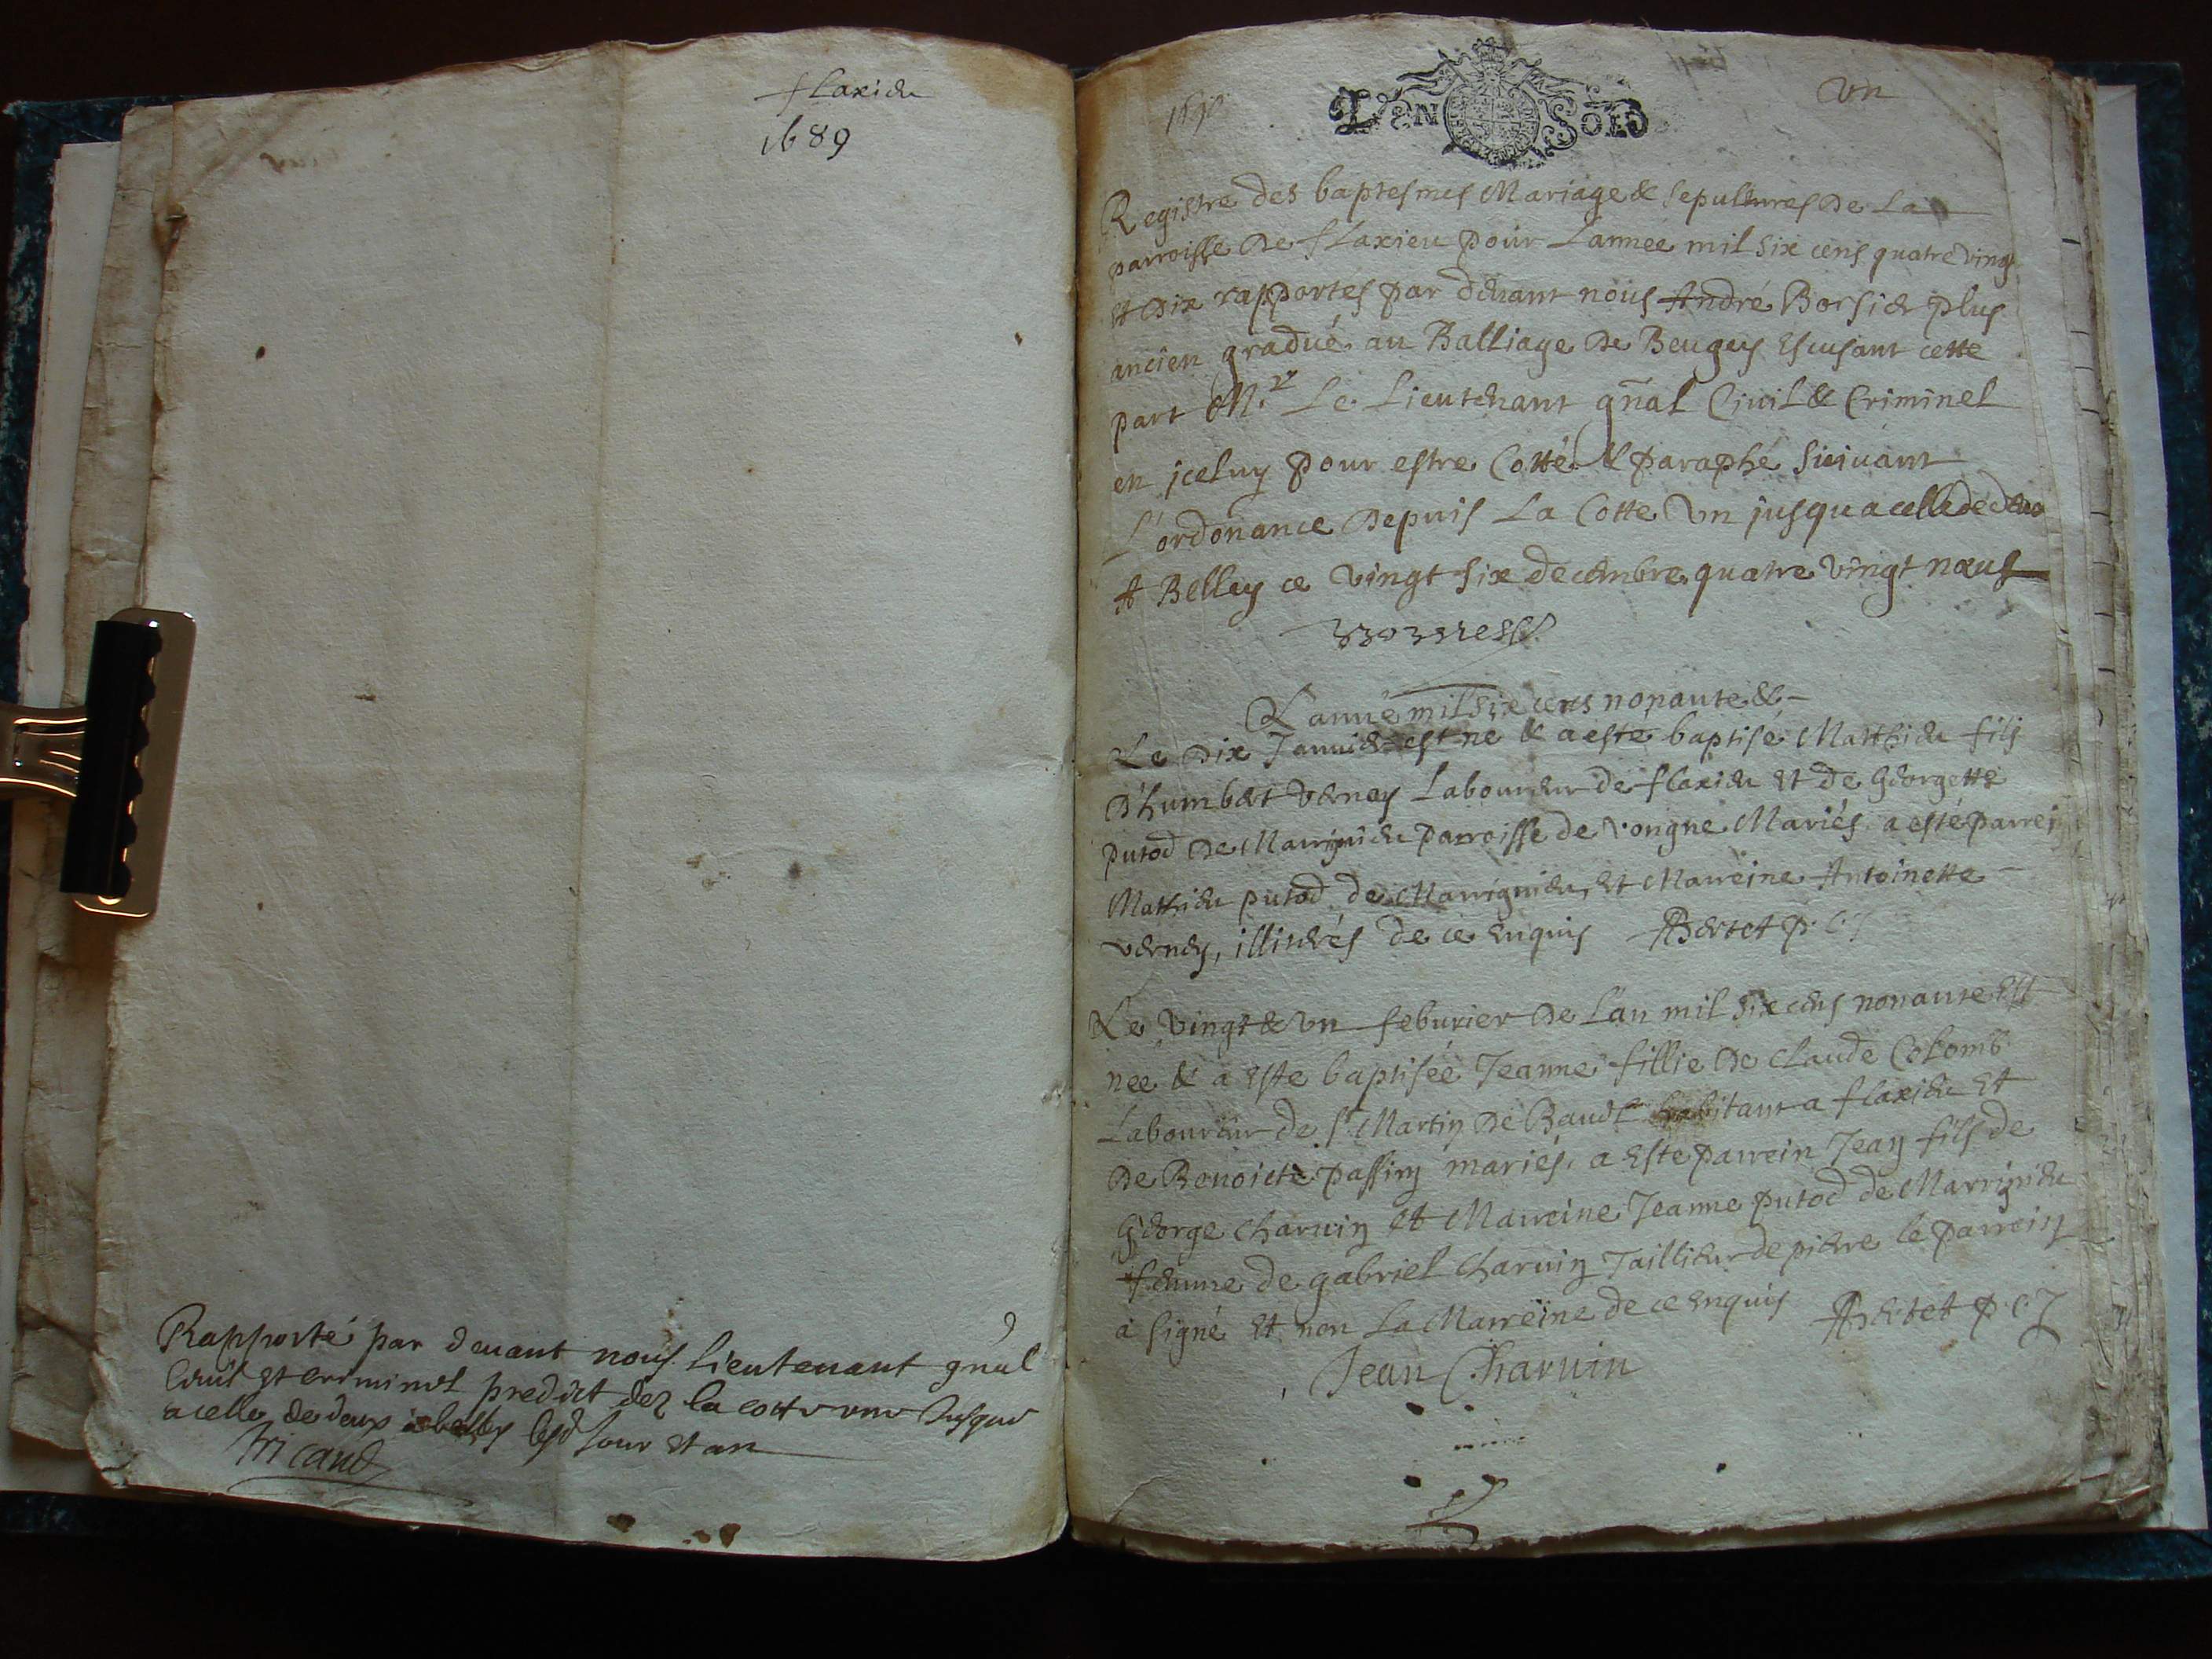 flaxieu
1689
Rapporté par deuant nous Lieutenant gnãl
Ciuil et criminel predict dez la cotte une Jusque
a celle de deux a belley lesd Jour et an
Tricaud
1690
un
Registre des baptesmes Mariage & sepultures de La
parroisse de flaxieu pour Lannee mil six cens quatre ving
et dix rapportés par deuant nous André Bossier plus
ancien gradué au Balliage de Beugey Escusant cette
part Mr. Le Lieutenant gñal Ciuil & Criminel
en jceluy pour estre Cotté & paraphé suiuant
L'ordonance depuis La Cotte un jusqu a celle de deux
A Belley ce vingt six decembre quatre vingt neuf
L'année mil six cens nonante &
Le dix Januier est ne & a esté baptisé Matthieu fils
D'humbert vernay Laboureur de flaxieu et de Georgette
putod de Marignieu parroisse de vongne Mariés a esté parrei
Mathieu putod de Marrignieu, et Marreine Antoinette
verney, illiterés de ce enquis Bertet p. C.
Le vingt & un feburier de L'an mil six cens nonante est
nee & a este baptisée Jeanne fillie de claude Colomb
Laboureur de st Martin de Baudt habitant a flaxieu et
de Benoicte passin mariés. a este parrein Jean fils de
George Charuin et Marreine Jeanne putod de Marrignieu
femme de gabriel Charuin Taillieur de pierre le parrein
a signé et non La Marreine de ce enquis Bertet p. C.
Jean Charuin